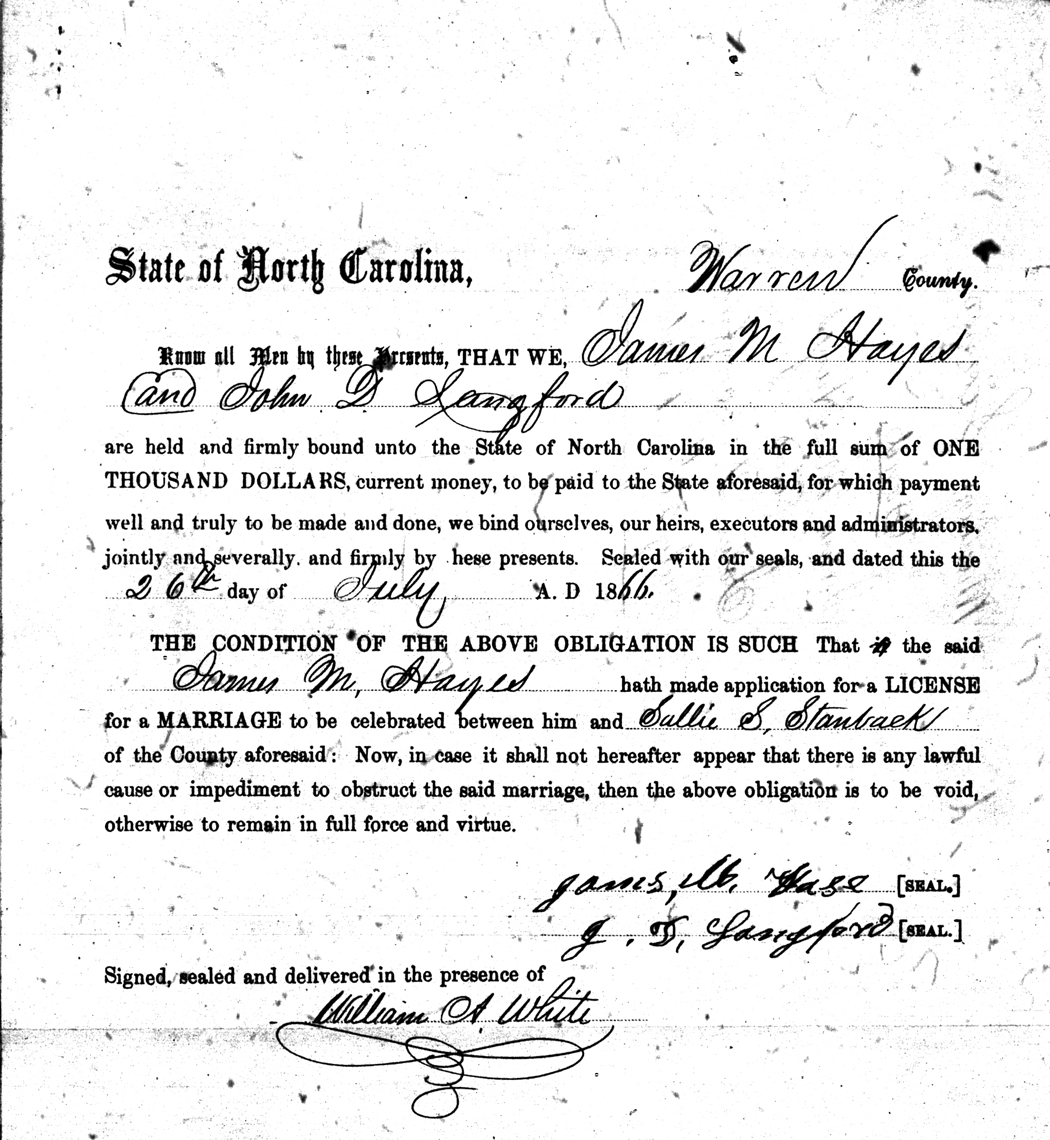 State of North Carolina, Warren County.
Know all Men by these Presents, THAT WE, James M Hayes
and John D Langford
are held and firmly bound unto the State of North Carolina in the full sum of ONE
THOUSAND DOLLARS, current money, to be paid to the State aforesaid, for which payment
well and truly to be made and done, we bind ourselves, our heirs, executors and administrators,
jointly and severally. and firmly by hese presents. Sealed with our seals, and dated this the
26th day of July, A. D 1866.
THE CONDITION OF THE ABOVE OBLIGATION IS SUCH That if the said
James M, Hayes hath made application for a LICENSE
for a MARRIAGE to be celebrated between him and Sallie S, Stanback
of the County aforesaid: Now, in case it shall not hereafter appear that there is any lawful
cause or impediment to obstruct the said marriage, then the above obligation is to be void,
otherwise to remain in full force and virtue.
James, M. Hase [SEAL.]
J. D, Langford [SEAL.]
Signed, sealed and delivered in the presence of
William A. White